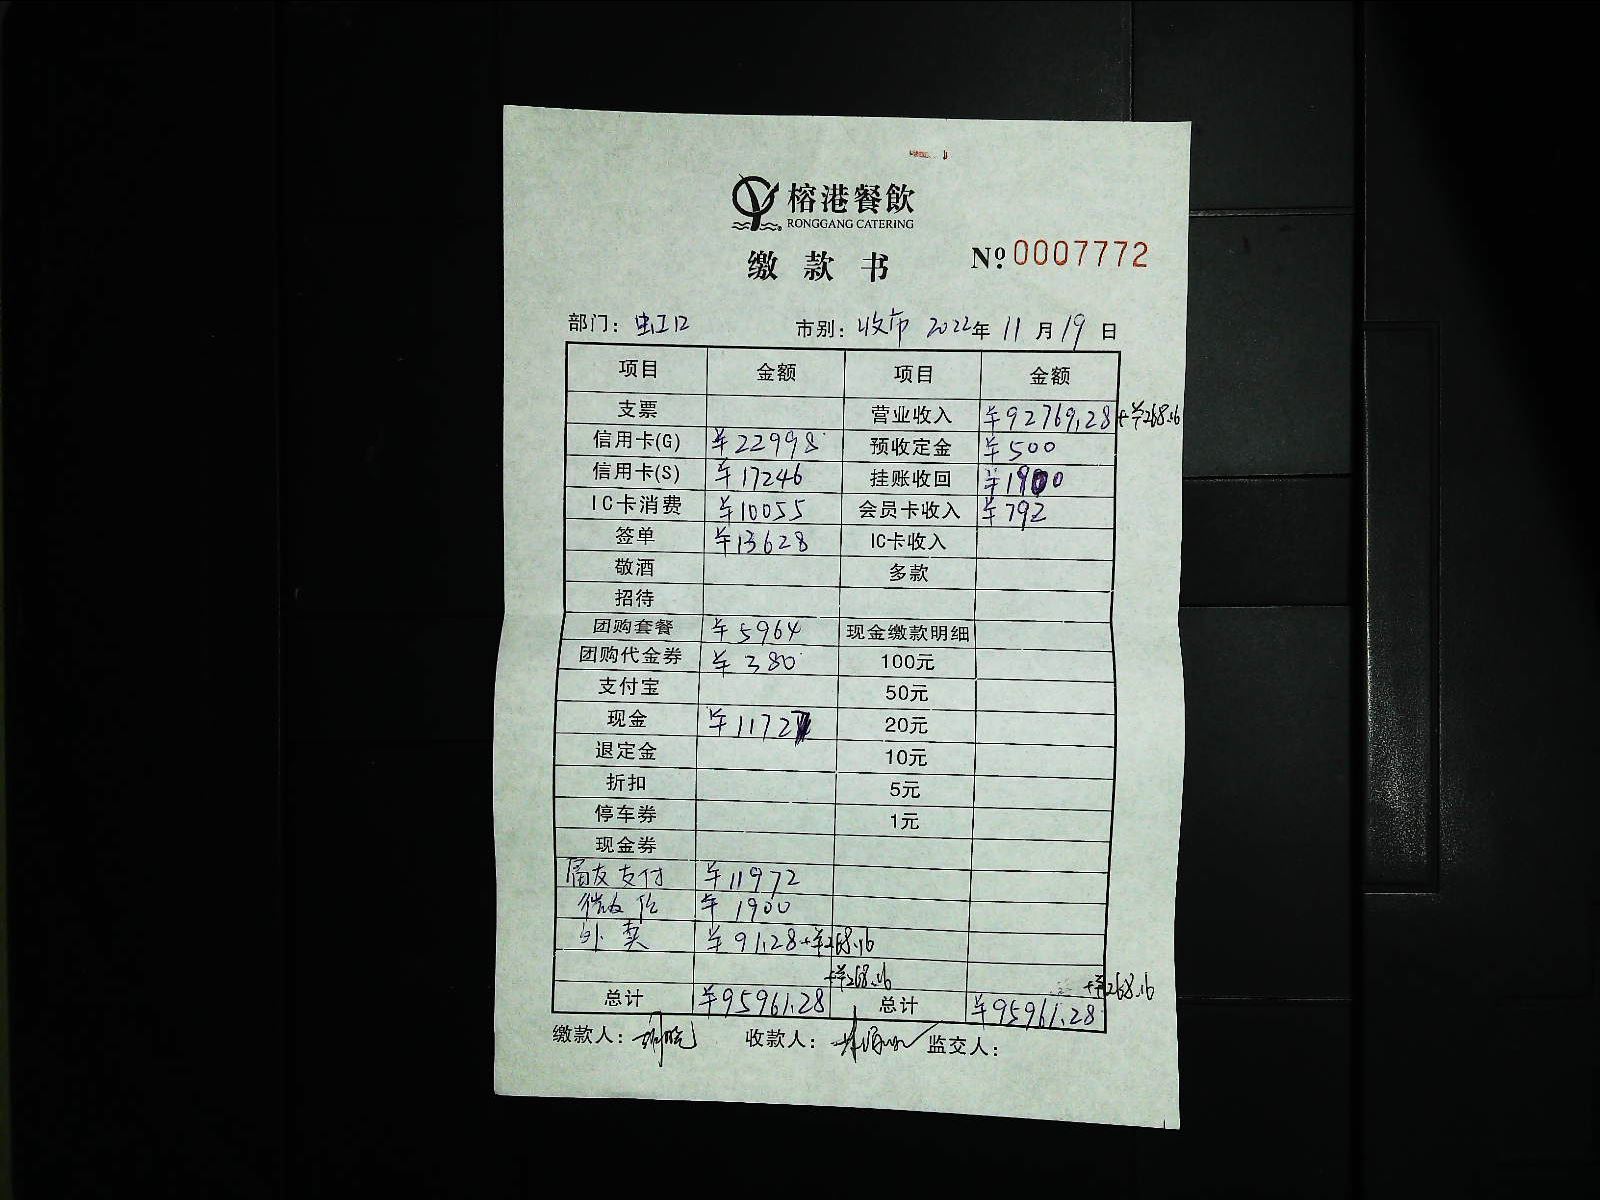 榕港餐飲
RONGGANG CATERING
缴款书 Nº 0007772
部门：虹口 市别：收市 2022年 11月19日
项目 金额 项目 金额
支票 营业收入 ¥92769.28+¥268.16
信用卡(G) ¥22998 预收定金 ¥500
信用卡(S) ¥17246 挂账收回 ¥1900
IC卡消费 ¥10055 会员卡收入 ¥792
签单 ¥13628 IC卡收入
敬酒 多款
招待
团购套餐 ¥5964 现金缴款明细
团购代金券 ¥380 100元
支付宝 50元
现金 ¥11727 20元
退定金 10元
折扣 5元
停车券 1元
现金券
支付 ¥11972
¥1900
外卖 ¥91.28+¥268.16
+¥268.16 +¥268.16
总计 ¥95961.28 总计 ¥95961.28
缴款人： 收款人： 监交人：